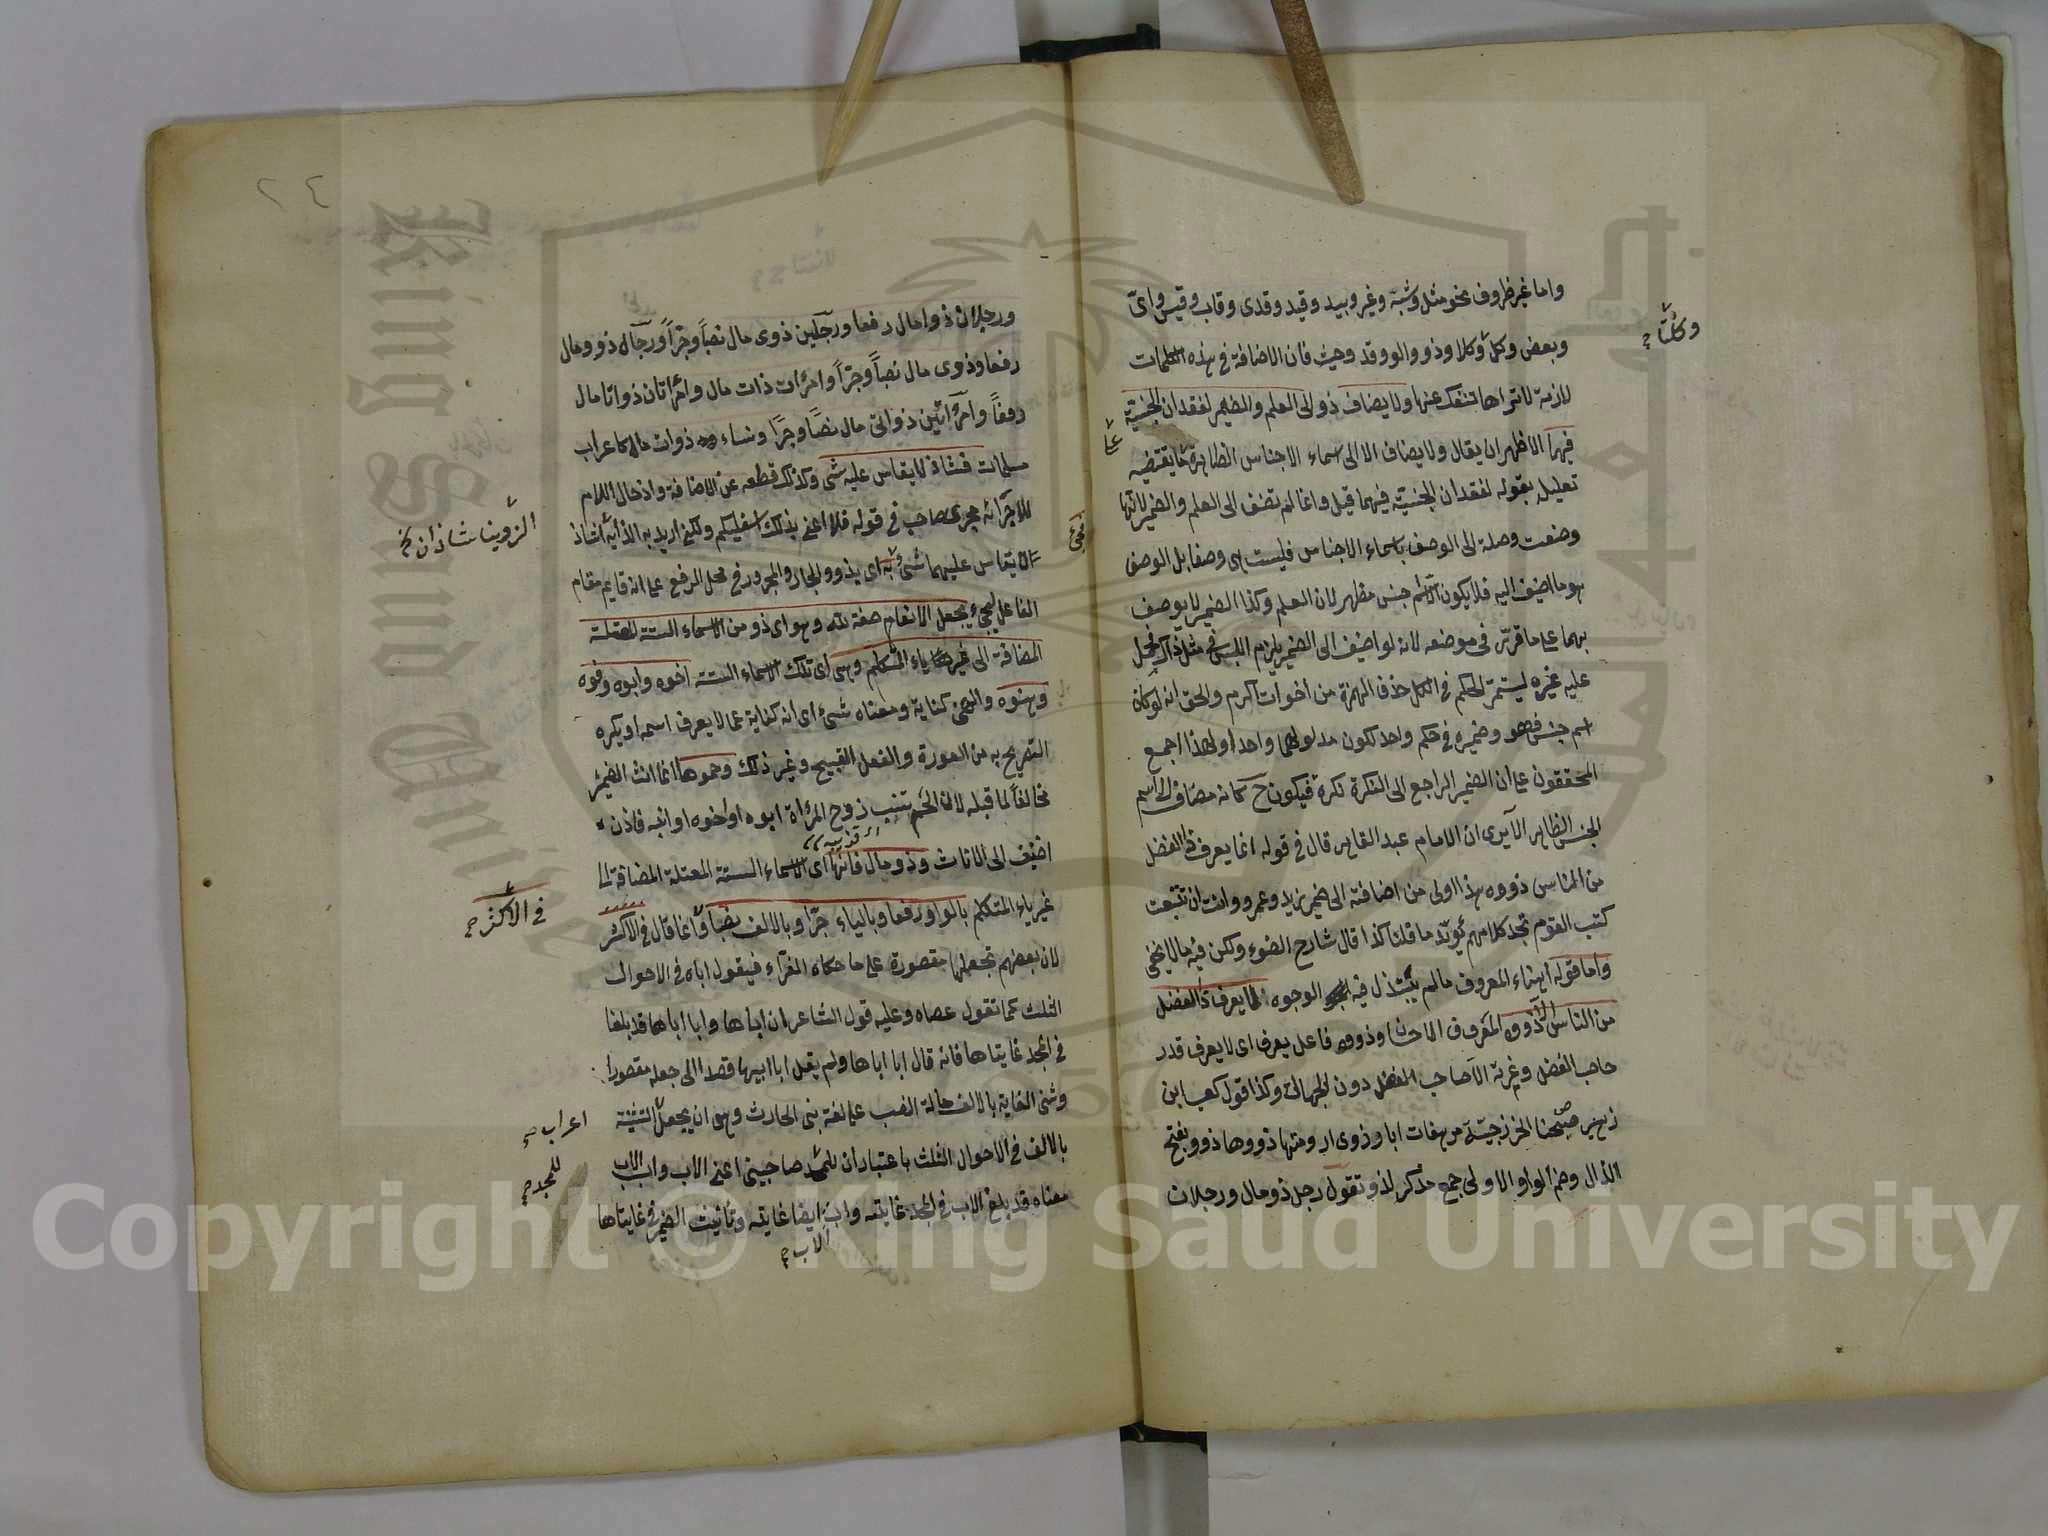 واما غير ظروف نحو مثل وشبه وغير وبيد وقيد وقدى وقاب وقيس واىّ
وكلتا
وبعض وكل وكلا وذو والو وقد وحيث فان الاضافة فى هذه الكلمات
لازمة لا تراها تنفك عنها ولا يضاف ذو الى العلم والمضمر لفقدان الجنسيّة
فيهما الاظهر ان يقال ولا يضاف الا الى اسماء الاجناس الظاهرة كما يقتضيه
تعليله بقوله لفقدان الجنسيّة فيهما قيل وانما لم تضف الى العلم والضمير لانّها
وضعت وصلة الى الوصف باسماء الاجناس فليست هى وصفا بل الوصف
هو ما اضيف اليه فلا يكون الا اسم جنس مظهر لان العلم وكذا الضمير لا يوصف
بهما على ما قرّر فى موضعه لانه لو اضيف الى الضمير يلزم اللبس فى مثل ذلك فحمل
عليه غيره ليستمرّ الحكم فى الكل حذف الهمزة من اخوات اكرم والحق انه لو كان
اسم جنس فهو وضميره فى حكم واحد لكون مدلولهما واحدا ولهذا اجمع
المحققون على ان الضمير الراجع الى النكرة نكرة فيكون ح كانه مضاف الى اسم
الجنس الظاهر الا يرى ان الامام عبد القاهر قال فى قوله انما يعرف ذا الفضل
من الناس ذووه هذا اولى من اضافته الى ضمير زيد وعمرو وانت ان تتبعت
كتب القوم تجد كلامهم يؤيّد ما قلنا كذا قال شارح الضوء ولكن فيه ما لا يخفى
واما قوله اهناء المعروف ما لم يبتذل فيه الوجوه انما يعرف ذا الفضل
من الناس ذووه المعروف الاحسان وذووه فاعل يعرف اى لا يعرف قدر
صاحب الفضل وعزّته الا صاحب الفضل دون الجهال وكذا قول كعب ابن
زهير صبحنا الخزرجيّة مرهفات ابا وذوى ارومتها ذووها ذوو بفتح
الذال وضم الواو الاولى جمع مذكر لذو تقول رجل ذو مال ورجلان
٢٤
ورجلان ذوا مال رفعا ورجلين ذوى مال نصباً وجرّاً ورجال ذوو مال
رفعا وذوى مال نصباً وجرّاً وامرات ذات مال وامراتان ذواتا مال
رفعاً وامرأتين ذواتى مال نصباً وجرّا ونساء ذوات مال كاعراب
مسلمات فشاذ لا يقاس عليه شئ وكذلك قطعه عن الاضافة وادخال اللام
للاجرائه مجرى صاحب فى قوله فلا اعنى بذلك اسفليكم ولكنى اريد به الذوينا شاذ
الذوينا شاذان
لا يقاس عليهما شئ به اى بذو والجار والمجرور فى محل الرفع على انه قايم مقام
الفاعل ليجئ يجعل الانعام صفة لله وهو اى ذو من الاسماء الستة المعتلة
المضافة الى غير ياء المتكلم وهى اى تلك الاسماء الستة اخوه وابوه وفوه
وهنوه والهن كناية ومعناه شئ اى انه كناية عما لا يعرف اسمه او يكره
التصريح به من العورة والفعل القبيح وغير ذلك وحموها انما انث الضمير
مخالفاً لما قبله لان الحم نسيب زوج المرأة ابوه او اخوه او ابنه فاذن
اضيف الى الاناث وذو مال فانها اى الاسماء الستة المعتلة المضافة الى
غير ياء المتكلم بالواو رفعا وبالياء جرّا وبالالف نصباً وانما قال فى الاكثر
فى الاكثر
لان بعضهم تجعلها مقصورة على ما حكاه الفرّاء فيقول اباه فى الاحوال
الثلث كما تقول عصاه وعليه قول الشاعر ان اباها وابا اباها قد بلغا
فى المجد غايتاها فانه قال ابا اباها ولم يقل ابا ابيها قصدا الى جعله مقصورا
وثنى الغاية بالالف حالة النصب على لغة بنى الحارث وهو ان يجعل التثنية
اعراب
بالالف فى الاحوال الثلث باعتبار ان للمجد صاحبين اعنى الاب واب الاب
للمجد
معناه قد بلغ الاب فى المجد غايته واب ايضا غايته وتأنيث الضمير فى غايتاها
الاب
King Saud University
Copyright © King Saud University
1957